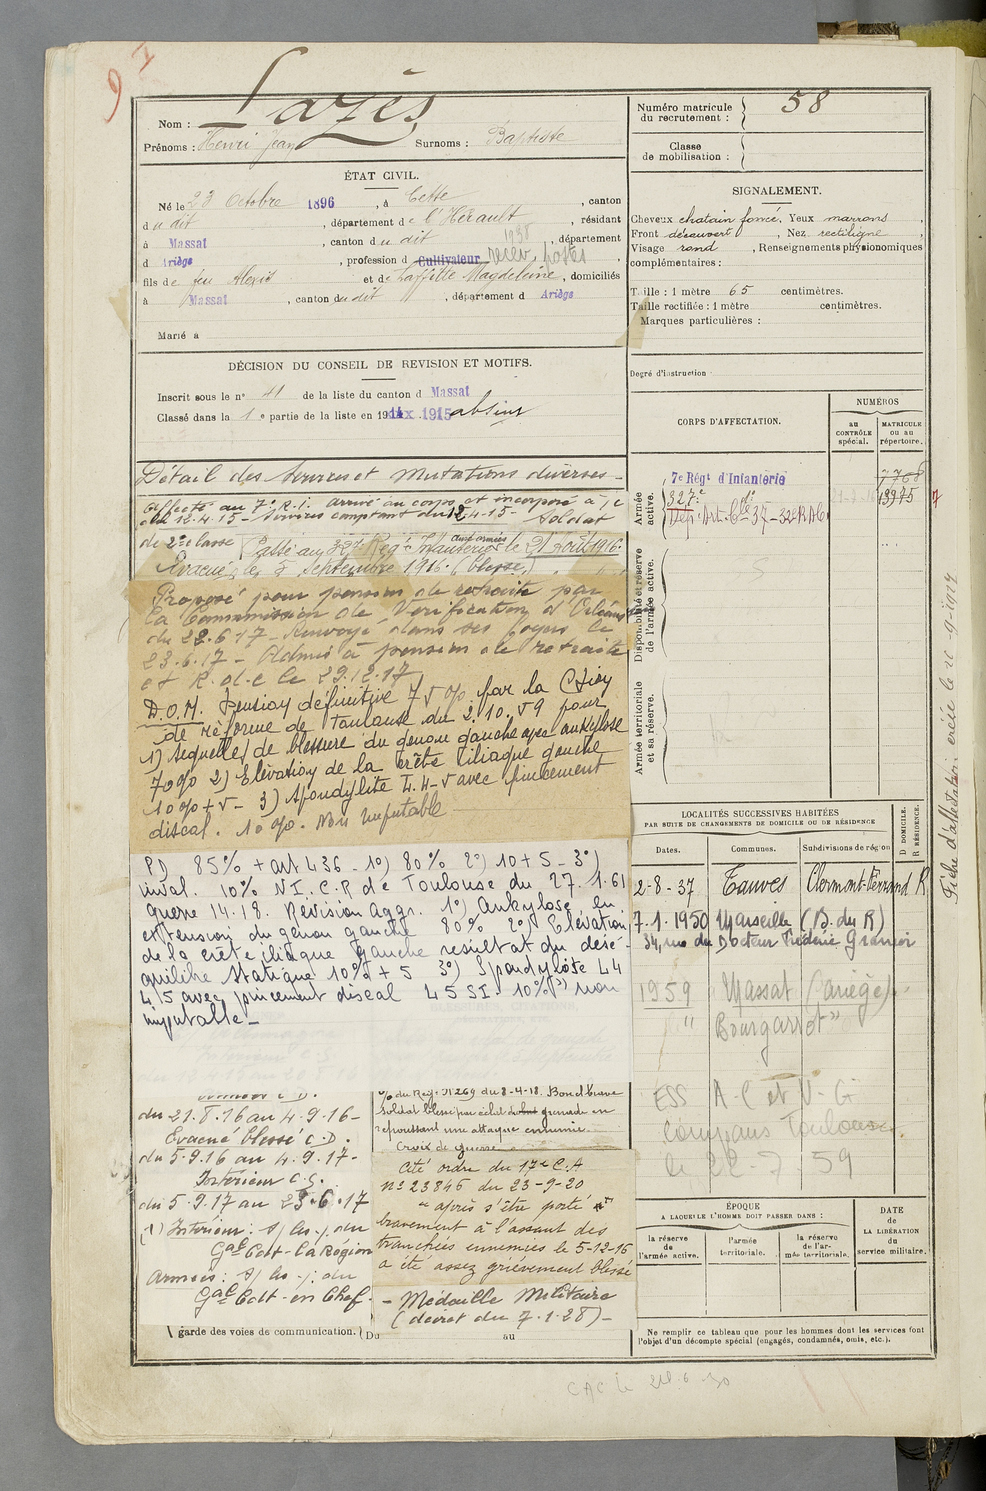 97
Nom : Lazès
Prénoms : Henri Jean Surnoms : Baptiste
ÉTAT CIVIL.
Né le 23 Octobre 1896, à Cette, canton
du dit, département de l'Hérault, résidant
à Massat, canton du dit, département
1938
d Ariège, profession d Cultivateur recev. postes
fils de feu Alexis et de Laffitte Magdeleine, domiciliés
à Massat, canton du dit, département d Ariège
Marié à
DÉCISION DU CONSEIL DE REVISION ET MOTIFS.
Inscrit sous le n° 41 de la liste du canton d Massat
Classé dans la 1e partie de la liste en 1915 absent
Détail des services et Mutations diverses
Affecté au 7e R.I. arrivé au corps et incorporé à, c
du 12.4.15 - Services comptant du 12.4.15 - Soldat
de 2e classe Passé au 327e Régt d'Infanterie aux armées le 21 Août 1916.
Évacué le 5 Septembre 1916 (blessé)
Proposé pour pension de retraite par
la Commission de Vérification d'Orléans
du 22.6.17 - Renvoyé dans ses foyers le
23.6.17 - Admis à pension de retraite
et R.d.c le 29.12.17
D.O.M. Pension définitive 75% par la Cion
de réforme de Toulouse du 2.10.59 pour
1) Séquelles de blessure du genou gauche avec ankylose
70% 2) Elévation de la crête iliaque gauche
10% + 5 - 3) Spondylite L.4-5 avec pincement
discal. 10%. Non imputable
PD 85% + art 436 - 1°) 80% 2°) 10+5 - 3°)
inval. 10% N.I. C.R de Toulouse du 27.1.61
guerre 14.18. Révision aggr. 1°) Ankylose en
extension du genou gauche 80% 2°) Elévation
de la crête iliaque gauche résultat du désé-
quilibre statique 10% + 5 3°) Spondylose L4
L5 avec pincement discal L5 S1. 10% non
imputable -
du 21.8.16 au 4.9.16 -
Evacué blessé C.D.
du 5.9.16 au 4.9.17 -
Intérieur C.S.
du 5.9.17 au 23.6.17
(1) Intérieur : du
Gal Cdt la Région
Armées : du
Gal Cdt en Chef.
garde des voies de communication. Du au
du Rég. N°269 du 8-4-18. Bon et brave
soldat blessé par éclat de grenade en
repoussant une attaque ennemie.
Croix de guerre
Cité ordre du 17e C.A
n° 23846 du 23-9-20
"après s'être porté
bravement à l'assaut des
tranchées ennemies le 5-12-16
a été assez grièvement blessé
- Médaille Militaire
(décret du 7.1.28) -
CAC le
Numéro matricule
du recrutement : 58
Classe
de mobilisation :
SIGNALEMENT.
Cheveux chatain foncé, Yeux marrons,
Front découvert, Nez rectiligne,
Visage rond, Renseignements physionomiques
complémentaires :
Taille : 1 mètre 65 centimètres.
Taille rectifiée : 1 mètre centimètres.
Marques particulières :
Degré d'instruction
CORPS D'AFFECTATION.
NUMÉROS
au
CONTRÔLE
spécial.
MATRICULE
ou au
répertoire.
Armée
active.
7e Régt d'Infanterie 7768
327e 13975
Dép. Art. Cie 37 - 32e RAC
Disponibilité et réserve
de l'armée active.
Armée territoriale
et sa réserve.
LOCALITÉS SUCCESSIVES HABITÉES
PAR SUITE DE CHANGEMENTS DE DOMICILE OU DE RÉSIDENCE
Dates. Communes. Subdivisions de région D DOMICILE. R RÉSIDENCE.
2-8-37 Tauves Clermont-Ferrand R
7.1.1950 Marseille (B. du R)
34, rue du Docteur Frédéric Granier
1959 Massat (Ariège)
" Bourgarrot"
ESS A-C et V-G
Compans Toulouse
le 22-7-59
ÉPOQUE
A LAQUELLE L'HOMME DOIT PASSER DANS :
la réserve
de l'armée active.
l'armée
territoriale.
la réserve
de l'ar-
mée territoriale.
DATE
de
LA LIBÉRATION
du
service militaire.
Ne remplir ce tableau que pour les hommes dont les services font
l'objet d'un décompte spécial (engagés, condamnés, omis, etc.).
Fiche d'attestation créée le 10-9-1974